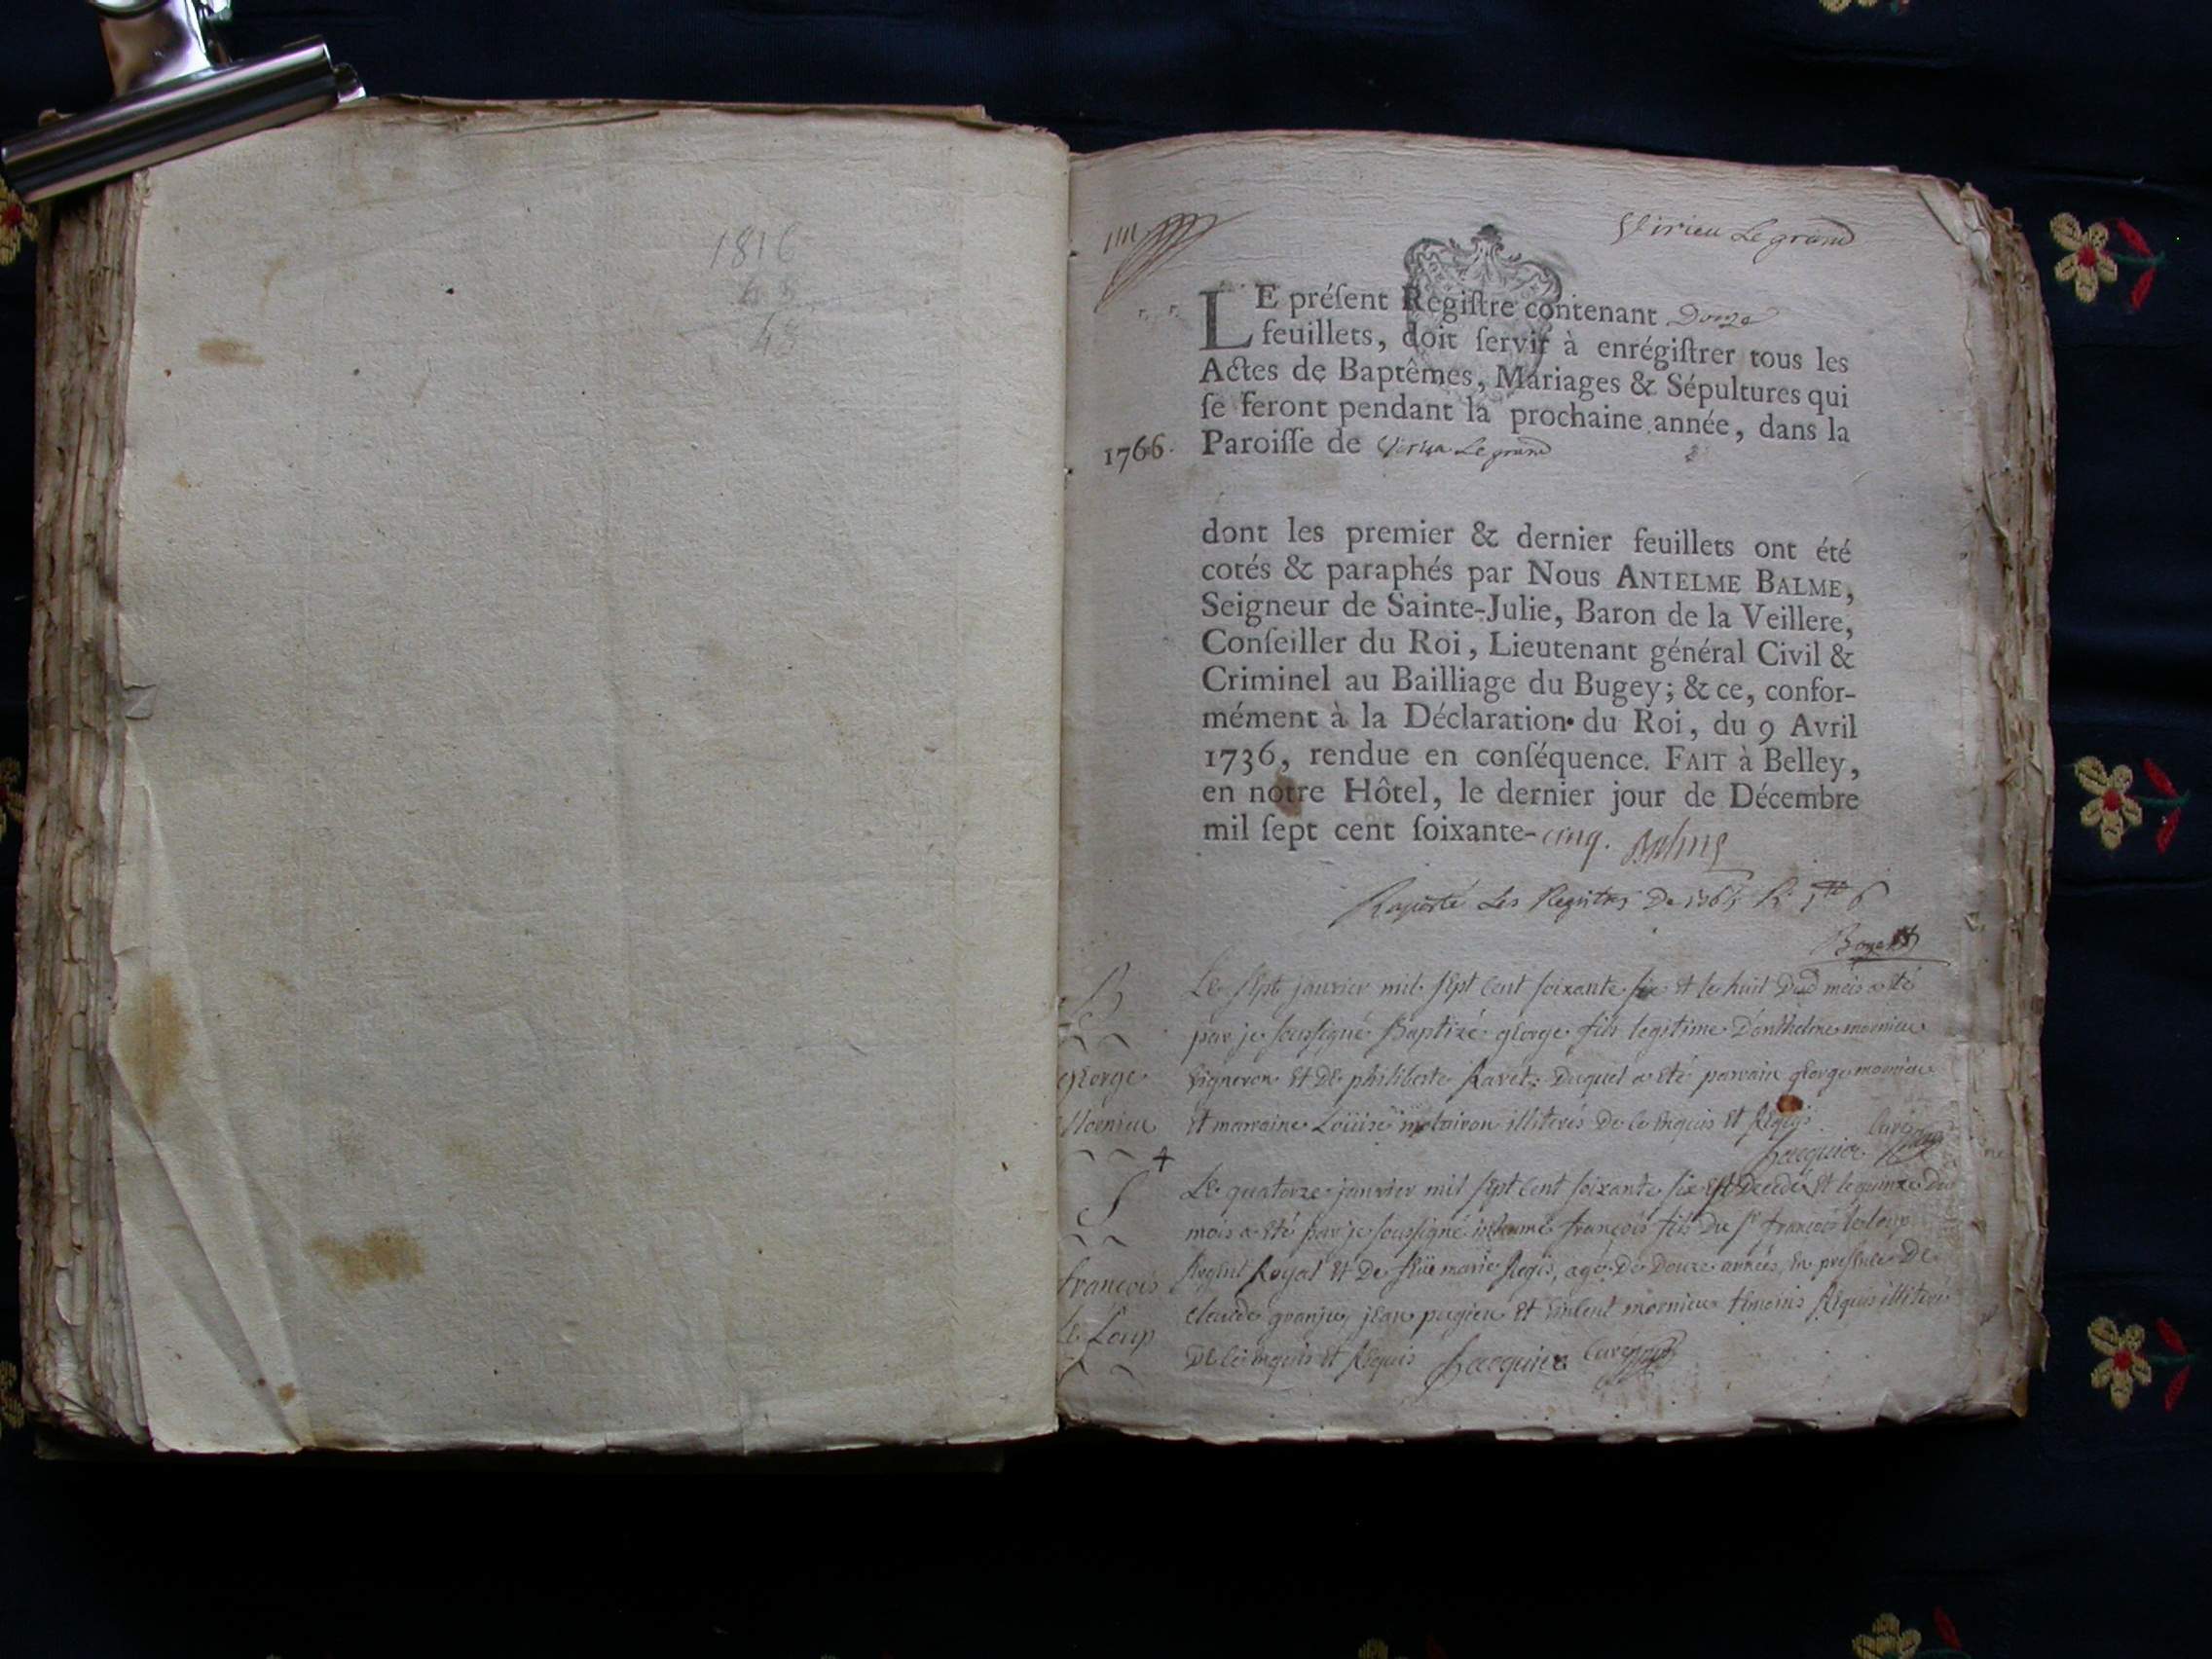 1816
48
48
Virieu Le grand
LE préſent Regiſtre contenant Douze
feuillets, doit ſervir à enrégiſtrer tous les
Actes de Baptêmes, Mariages & Sépultures qui
ſe feront pendant la prochaine année, dans la
1766. Paroiſſe de Virieu Le grand
dont les premier & dernier feuillets ont été
cotés & paraphés par Nous ANTELME BALME,
Seigneur de Sainte-Julie, Baron de la Veillere,
Conſeiller du Roi, Lieutenant général Civil &
Criminel au Bailliage du Bugey; & ce, confor-
mément à la Déclaration du Roi, du 9 Avril
1736, rendue en conſéquence. FAIT à Belley,
en notre Hôtel, le dernier jour de Décembre
mil ſept cent ſoixante-cinq. Balme
Raporté Les Registres De 1765
B
George
Mornieu
Le sept janvier mil sept cent soixante six et le huit dud mois a eté
par je soussigné Baptizé george fils legitime D'anthelme mornieu
vigneron et De philiberte Ravet: Duquel a eté parrain george mornieu
et marraine Louise illiterés De ce enquis et Requis
Jacquier Curé
S
françois
Le Loup
Le quatorze janvier mil sept cent soixante six est Decedé et le quinze dud
mois a eté par je soussigné inhumé françois fils Du Sr françois le loup
Regent Royal et De feüe marie Regis, agé De Douze années, en presence De
claude granju, jean pugieu et vincent mornieu temoins Requis illiterés
De ce enquis et Requis Jacquier Curé